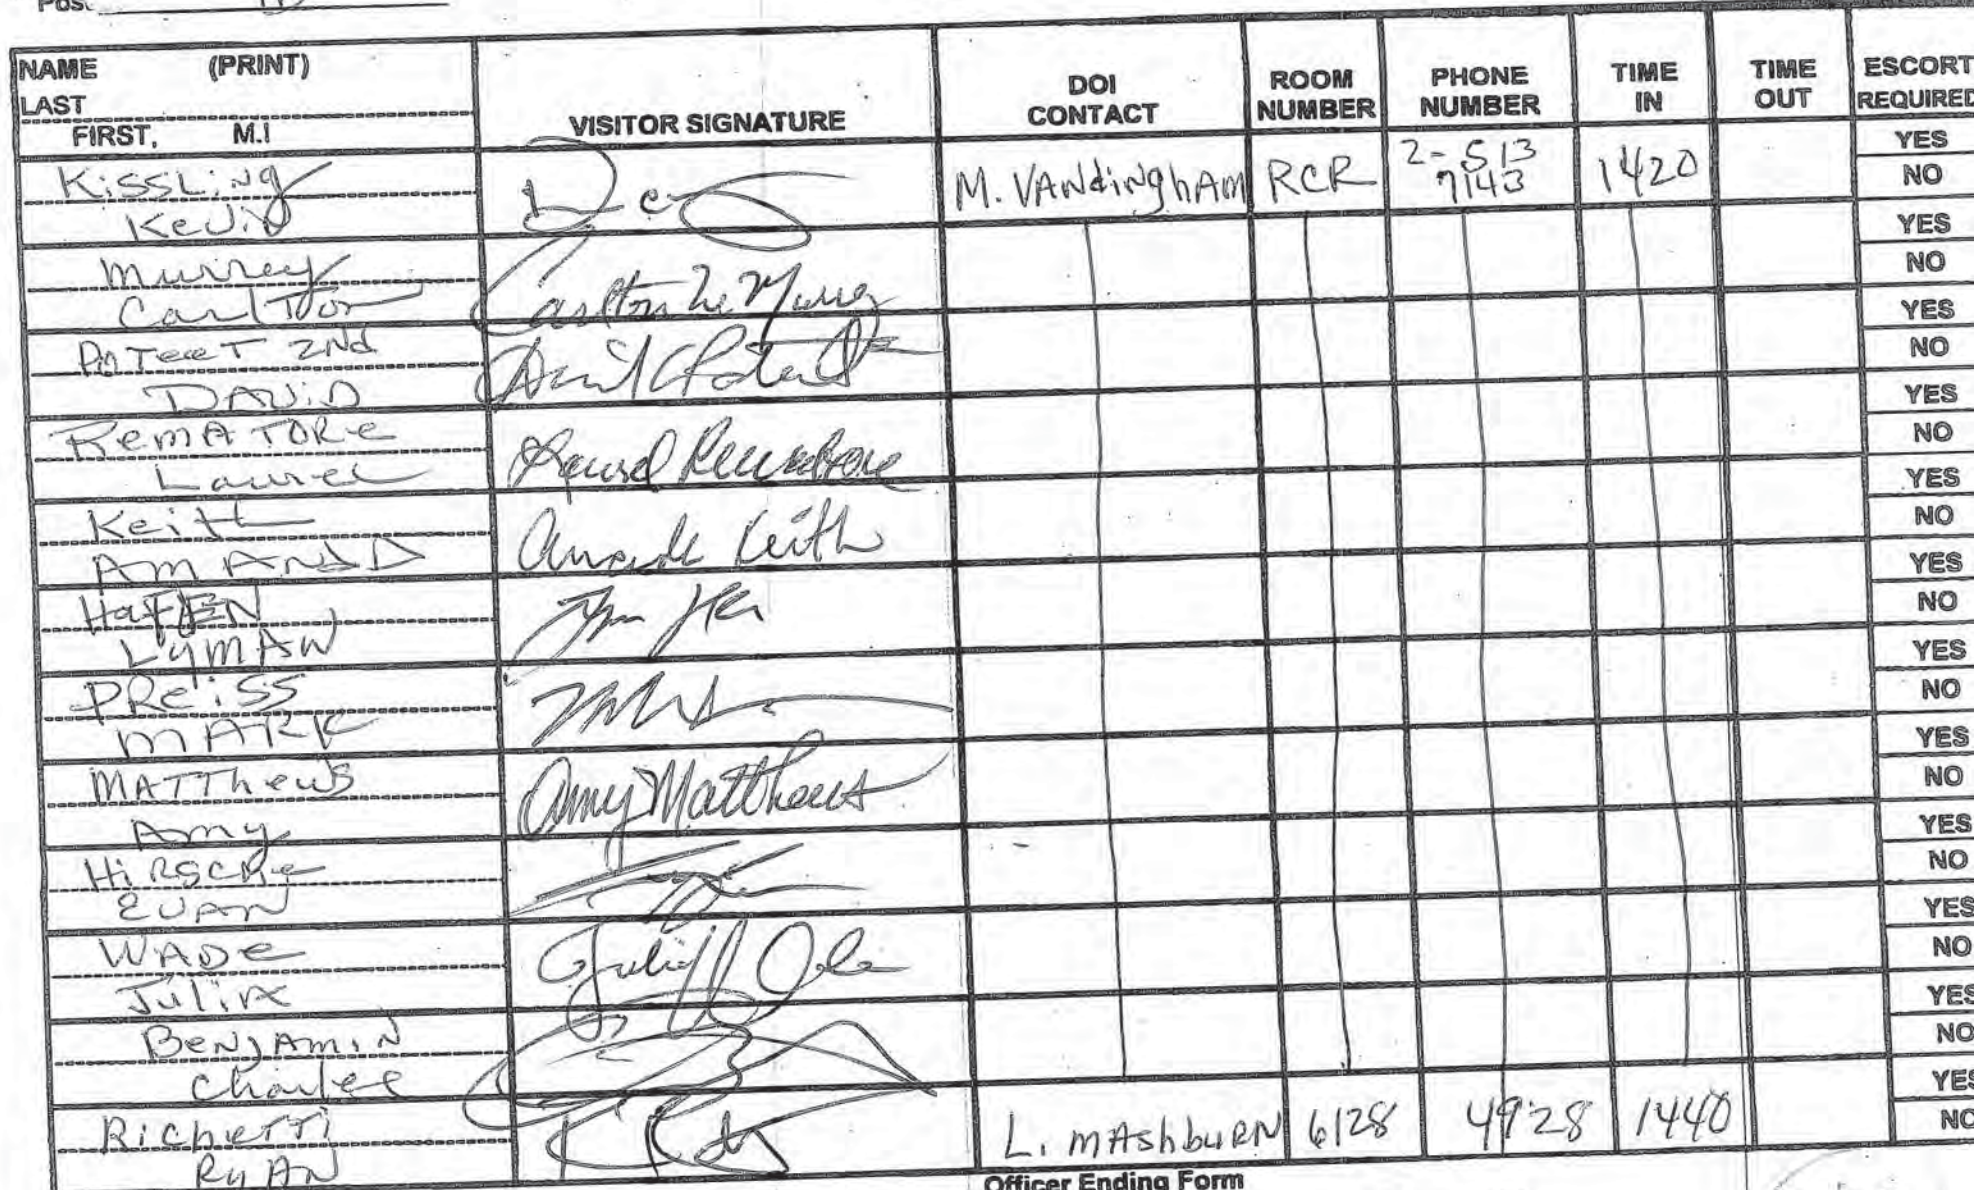 Pos.
NAME (PRINT)
LAST
FIRST, M.I
VISITOR SIGNATURE
DOI CONTACT
ROOM NUMBER
PHONE NUMBER
TIME IN
TIME OUT
ESCORT REQUIRED
KissLiNg
KeviN
M. VANdiNghAM RCR 2-513 7143 1420
YES
NO
Murrey
CarlTon
Carlton Le Murrey
YES
NO
PoTeeT 2Nd
DAViD
YES
NO
RemATORe
Laurel
Laurel Rematore
YES
NO
Keith
AmANdA
Amanda Keith
YES
NO
HafEN
LymAN
YES
NO
PReiSS
mARK
YES
NO
MATThewS
Amy
Amy Matthews
YES
NO
HiRsche
EVAN
YES
NO
WADe
Julia
YES
NO
BeNjAmiN
Charles
YES
NO
RicheTTi
RyAN
L. mAshbuRN 6128 4928 1440
YES
NO
Officer Ending Form